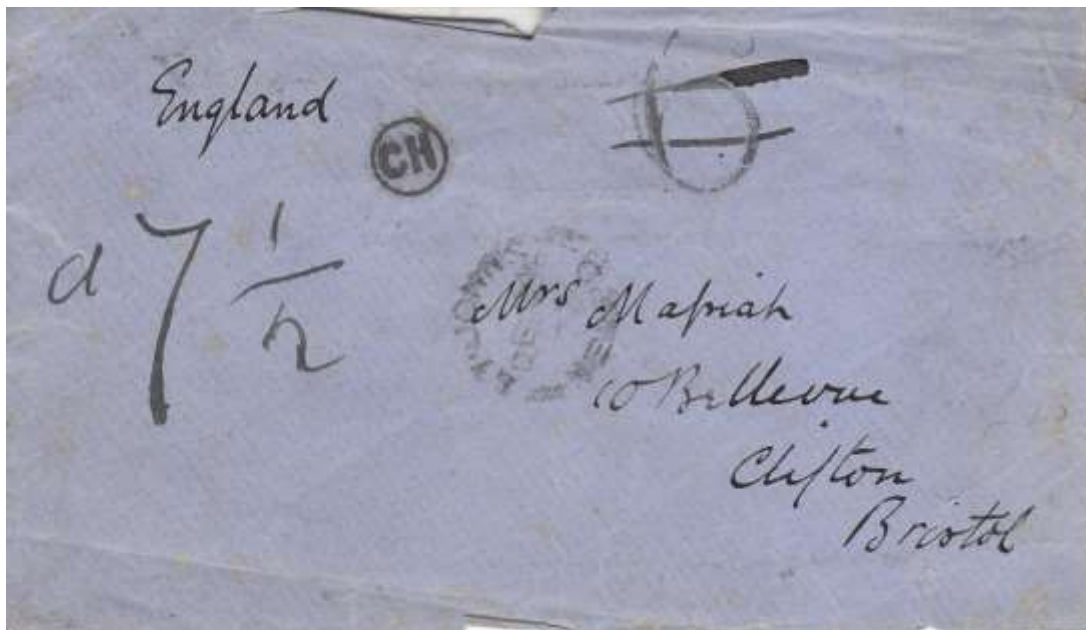 England
CH
d 7 1/2
Mrs Massiah
10 Bellevue
Clifton
Bristol